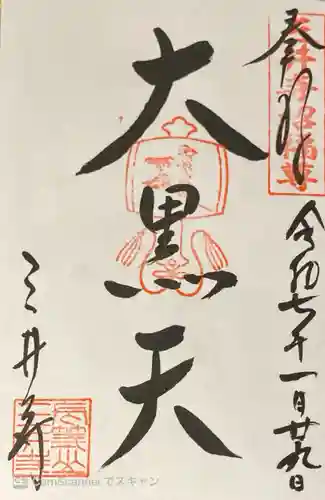 奉拝
令和七年一月廿九日
大黒天
三井寺
CamScanner でスキャン